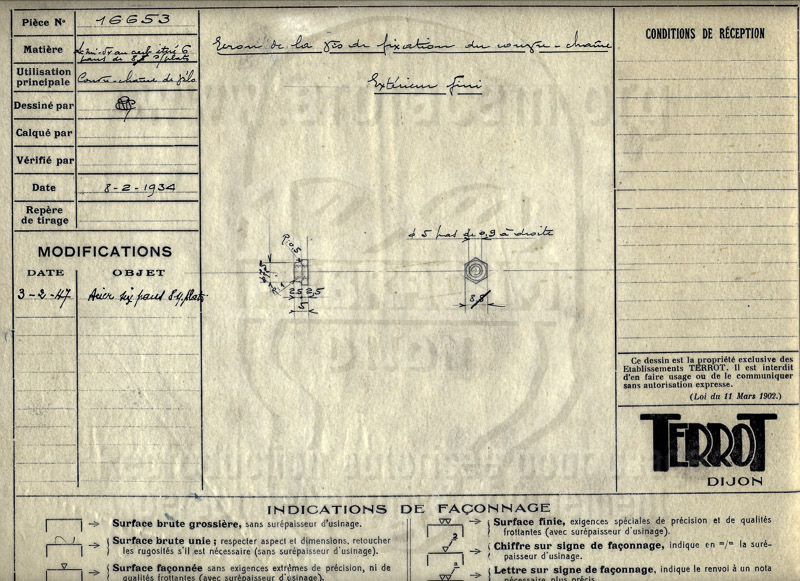 Pièce Nº 16653
Matière
pans de 8,8 s/plats
Utilisation
principale
Couvre-chaîne de vélo
Dessiné par
Calqué par
Vérifié par
Date 8-2-1934
Repère
de tirage
MODIFICATIONS
DATE OBJET
3-2-47 Acier six pans 8 s/plats
Ecrou de la vis de fixation du couvre-chaîne
Extérieur fini
R:0,5
2,5 2,5
5
φ 5 pas de 0,9 à droite
8,8
CONDITIONS DE RÉCEPTION
Ce dessin est la propriété exclusive des
Etablissements TERROT. Il est interdit
d'en faire usage ou de le communiquer
sans autorisation expresse.
(Loi du 11 Mars 1902.)
TERROT
DIJON
INDICATIONS DE FAÇONNAGE
Surface brute grossière, sans surépaisseur d'usinage.
Surface brute unie; respecter aspect et dimensions, retoucher
les rugosités s'il est nécessaire (sans surépaisseur d'usinage).
Surface façonnée sans exigences extrêmes de précision, ni de
qualités frottantes (avec surépaisseur d'usinage).
Surface finie, exigences spéciales de précision et de qualités
frottantes (avec surépaisseur d'usinage).
Chiffre sur signe de façonnage, indique en m/m la suré-
paisseur d'usinage.
Lettre sur signe de façonnage, indique le renvoi à un nota
nécessaire plus précis